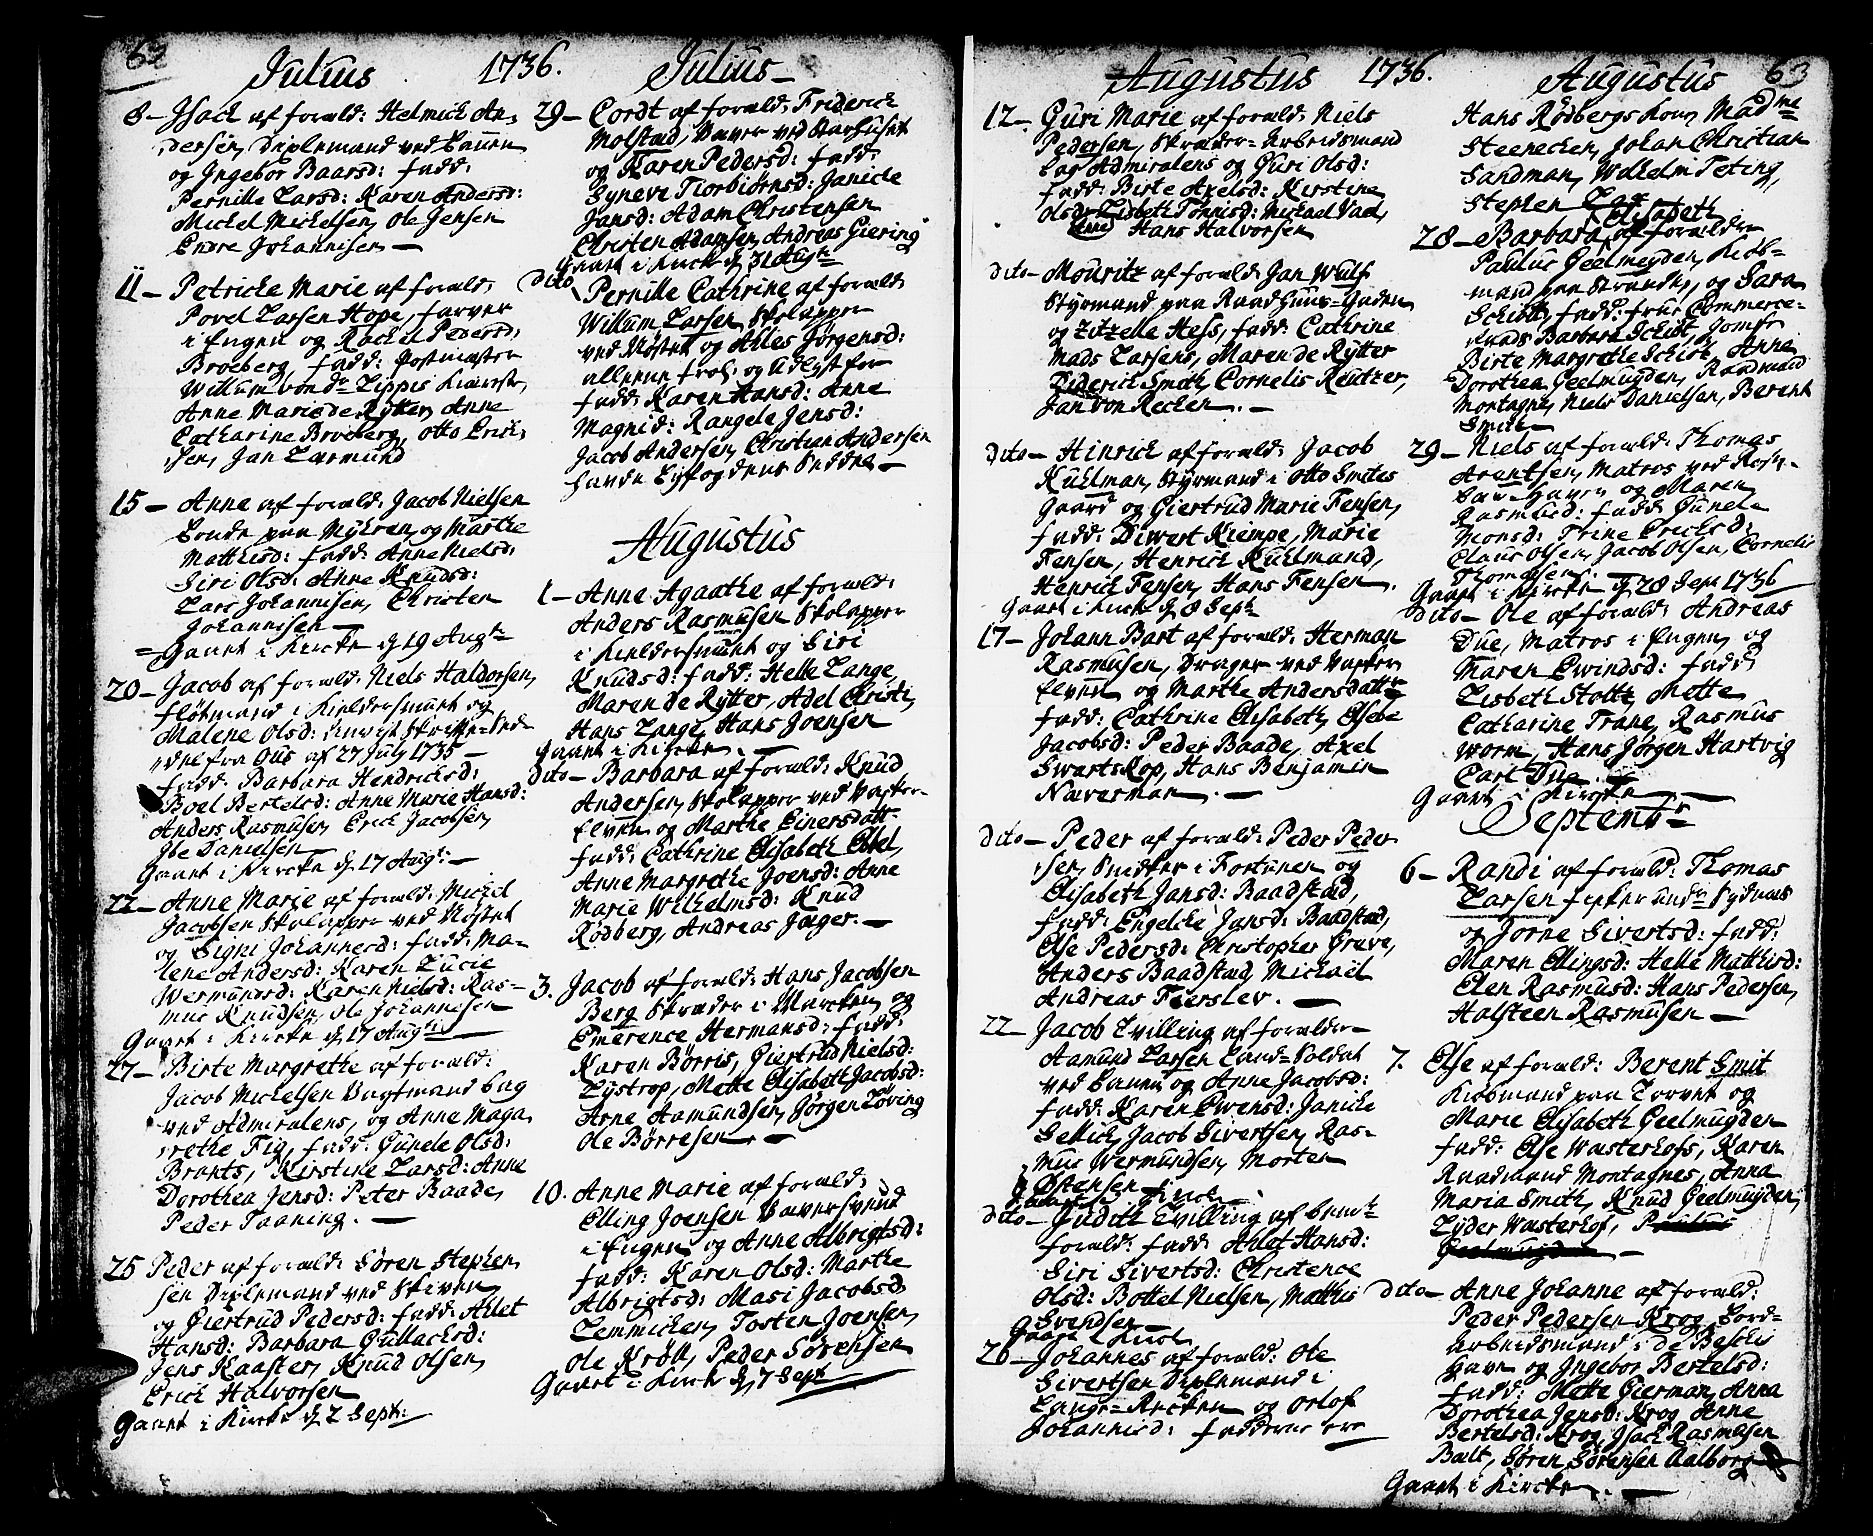 63
Julius 1736. Julius
8 - Jsach af foræld: Helmich An,
dersen, Diplemand ved
og Jngebor Baarsd: fadd:
Pernille Larsd: Karen Andersd:
Michel Michelsen, Ole Jensen
Endre Johannisen
11 - Petriche Marie af foræld:
Povel Larsen Hope, farver
i Engen og Rachel Pedersd:
Broeberg, fadd: Postmester
Willum von d: Lippis Kiæreste,
Anne Marie de Rÿtter, Anne
Catharine Broeberg, Otto Erich,
sen, Jan Larmund
15 - Anne af foræld: Jacob Nielsen
bonde paa Myhren, og Marthe
Matthisd: fadd: Anne Nielsd:
Siri Olsd: Anne Knudsd:
Lars Johannisen, Christen
Johannisen
Gaaet i Kircke d 19 Augt
20 - Jacob af foræld: Niels Haldorsen,
fløtmand i Kieldersmuet og
Malene Olsd: hendes Skrifte-Sed-
del fra Ous af 27 July 1735
fadd: Barbara Hendrichsd:
Boel Bertelsd: Anne Marie Hansd:
Anders Rasmusen, Erich Jacobsen,
Jbe Danielsen
Gaaet i Kircke d 17 Augt:
22 - Anne Marie af foræld: Michel
Jacobsen Skolapper ved Nøstet
og Signi Johannesd: fadd: Ma-
lene Andersd: Karen Lucie
Wermundsd: Karen Nielsd: Ras-
mus Knudsen, Ole Johannesen
Gaaet i Kircke d 17 Augt:
27 - Birte Margrethe af foræld:
Jacob Michelsen Vagtmand bag
ved Admiralens, og Anne Maga
rethe Fig, fadd: Gunele Olsd:
Bronts, Kirstine Larsd: Anne
Dorothea Jensd: Peter Baade,
Peder Taaning.
25 Peder af foræld: Søren Stephen
sen Diplemand ved Skiven
og Giertrud Pedersd: fadd: Ahlet
Hansd: Barbara Gullachsd:
Jens Kaaster, Knud Olsen,
Erich Halvorsen
Gaaet i Kircke d 2 Sept:
29 - Cordt af foræld: Friderich
Molstæd, Væver ved Starhuset
og Karen Pedersd: fadd:
Syneve Tiorbiørnsd: Janiche
Jansd: Adam Christensen
Christen Adamsen, Andreas Giering
Gaaet i Kirck d 31 Augt
dito Pernille Cathrine af foræld:
Willum Larsen, Skolapper
ved Nøstet og Ahles Jørgensd:
fadd: Karen Hansd: Anne
Magnid: Rangele Jensd:
Jacob Andersen, Christian Andersen
Augustus
1 - Anne Agaathe af foræld:
Anders Rasmusen Skolapper
i Kieldersmuet og Siri
Knudsd: fadd: Helle Lange,
Maren de Rÿtter, Adel Christi,
Hans Lange, Hans Joensen
Gaaet i Kircke.
dito - Barbara af foræld: Knud
Andersen, Skolapper ved Vaster-
Elven og Marthe Einersdatt
fadd: Cathrine Elisabeth Ebbel,
Anne Margrethe Joensd: Anne
Marie Wilhelmsd: Knud
Rødberg, Andreas Jæger.
3. Jacob af foræld: Hans Jacobsen
Berg Skræder i Marcken, og
Emerence Hermansd: fadd:
Karen Børris, Giertrud Nielsd:
Lÿstrop, Mette Elisabeth Jacobsd:
Arne Aamundsen, Jørgen Løving
Ole Børresen.
10. Anne Marie af foræld:
Elling Joensen Væversvend
i Engen og Anne Albrigtsd:
fadd: Karen Olsd: Marthe
Albrigtsd: Masi Jacobsd:
Lemmichen, Tosten Joensen,
Ole Krøll, Peder Sørensen
Gaaet i Kircke d 7 Sept
Augustus 1736. Augustus 63
12 - Guri Marie af foræld: Niels
Pedersen, Skræder-Arbeidsmand
bag Admiralens og Guri Olsd:
fadd: Birte Axelsd: Kirstine
Olsd: Lisbeth Tønnisd: Michael Vael,
Hans Halvorsen
dito - Mouritz af foræld: Jan Wulf
Styrmand paa Raadhuus-Gaden
og Zitzelle Hess, fadd: Cathrine
Mads Larsens, Maren de Rÿtter
Diderich Smith, Cornelis Reutzer,
Jan von Recken.
dito - Hinrich af foræld: Jacob
Kuhlman, Styrmand i Otto Smites
Gaard og Giertrud Marie Fensen,
fadd: Diwert Kiempe, Marie
Fensen, Henrich Kuhlmand,
Henrich Fensen, Hans Fensen.
Gaaet i Kirck d 8 Sept
17 - Johann Bart af foræld: Herman
Rasmusen, Drager ved Vaster
Elven og Marthe Andersdattr
fadd: Cathrine Elisabeth, Elsebe
Jacobsd: Peder Baade, Axel
Swartskop, Hans Benjamin
Næverman.
dito - Peder af foræld: Peder Peder
sen, Snidker i Fortunen og
Elisabeth Jansd: Baadstæd,
fadd: Engelche Jansd: Baadstæd,
Else Pedersd: Christopher Greve,
Anders Baadstæd, Michaël
Andreas Feierslev.
22 - Jacob Tvilling af forældr
Aamund Larsen Land-Soldat
ved og Anne Jacobsd:
fadd: Karen Ewensd: Janiche
Sellich, Jacob Sivertsen, Ras-
mus Wermundsen, Morten
Østensen
Gaaet i Kirck
dito - Judith Tvilling af bemte
foræld: fadd: Ahlet Hansd:
Siri Sivertsd: Christence
Olsd: Bottel Nielsen, Matthis
Svendsen
Gaaet i Kirck
26 - Johannes af foræld: Ole
Sivertsen Diplemand i
Lange-Recken og Orlof
Johannisd: fadderne ere
Hans Rødbergs Kone, Madme
Steenecken, Johan Christian
Sandman, Wilhelm Peting,
Stephen
28 - Barbara Elisabeth af forældre
Paulus Geelmeyden, Kiøb-
mand paa Stranden, og Sara
Schiott, fadd: frue Commerce-
Raads Barbara Schiøt, Jomfr
Birte Margrethe Schiøt, Anne
Dorothea Geelmuyden, Raadmand
Montagne, Niels Danielsen, Berent
Smith
29 - Niels af foræld: Thomas
Arentsen, Matros ved
og Maren
Rasmusd: fadd: Gunel-
Monsd: Trine Erichsd:
Claus Olsen, Jacob Olsen, Cornelis
Thomassen
Gaaet i Kircke d 28 Sept 1736
dito - Ole af foræld: Andreas
Due, Matros i Engen, og
Maren Ewindsd: fadd:
Lisbeth Stoltz, Mette
Catharine Trane, Rasmus
Worm, Hans Jørgen Hartvig
Carl Due.
Gaaet i Kircke
Septembr
6 - Randi af foræld: Thomas
Larsen fisker und Sydnæs
og Jorne Sivertsd: fadd:
Maren Ellingsd: Helle Matthisd:
Elen Rasmusd: Hans Pedersen,
Halsteen Rasmusen
7. Else af foræld: Berent Smit
Kiøbmand paa Torvet og
Marie Elisabeth Geelmuyden
fadd: Else Wasterhofs, Karen
Raadmand Montagnes, Anna
Maria Smith, Knud Geelmuyden,
Lÿder Wasterhof, Paulus
Geelmuyden
dito - Anne Johanne af foræld:
Peder Pedersen Krog, Bord-
Arbeidsmand i de Beskes
Gaven og Jngebor Bertelsd:
fadd: Mette Gierman, Anna
Dorothea Jensd: Krog, Anne
Bertelsd: Krog, Jsach Rasmusen
Balt, Søren Sørensen Aalborg
Gaaet i Kircken.